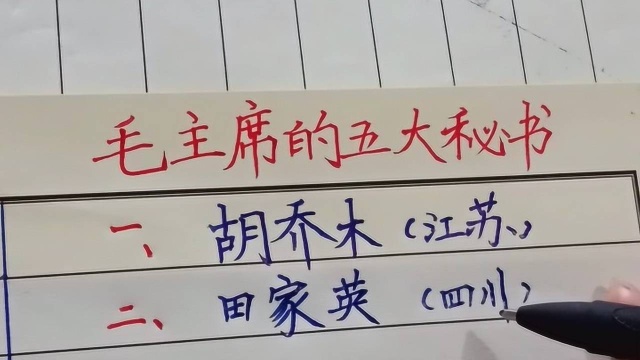 毛主席的五大秘书
一、胡乔木（江苏）
二、田家英（四川）